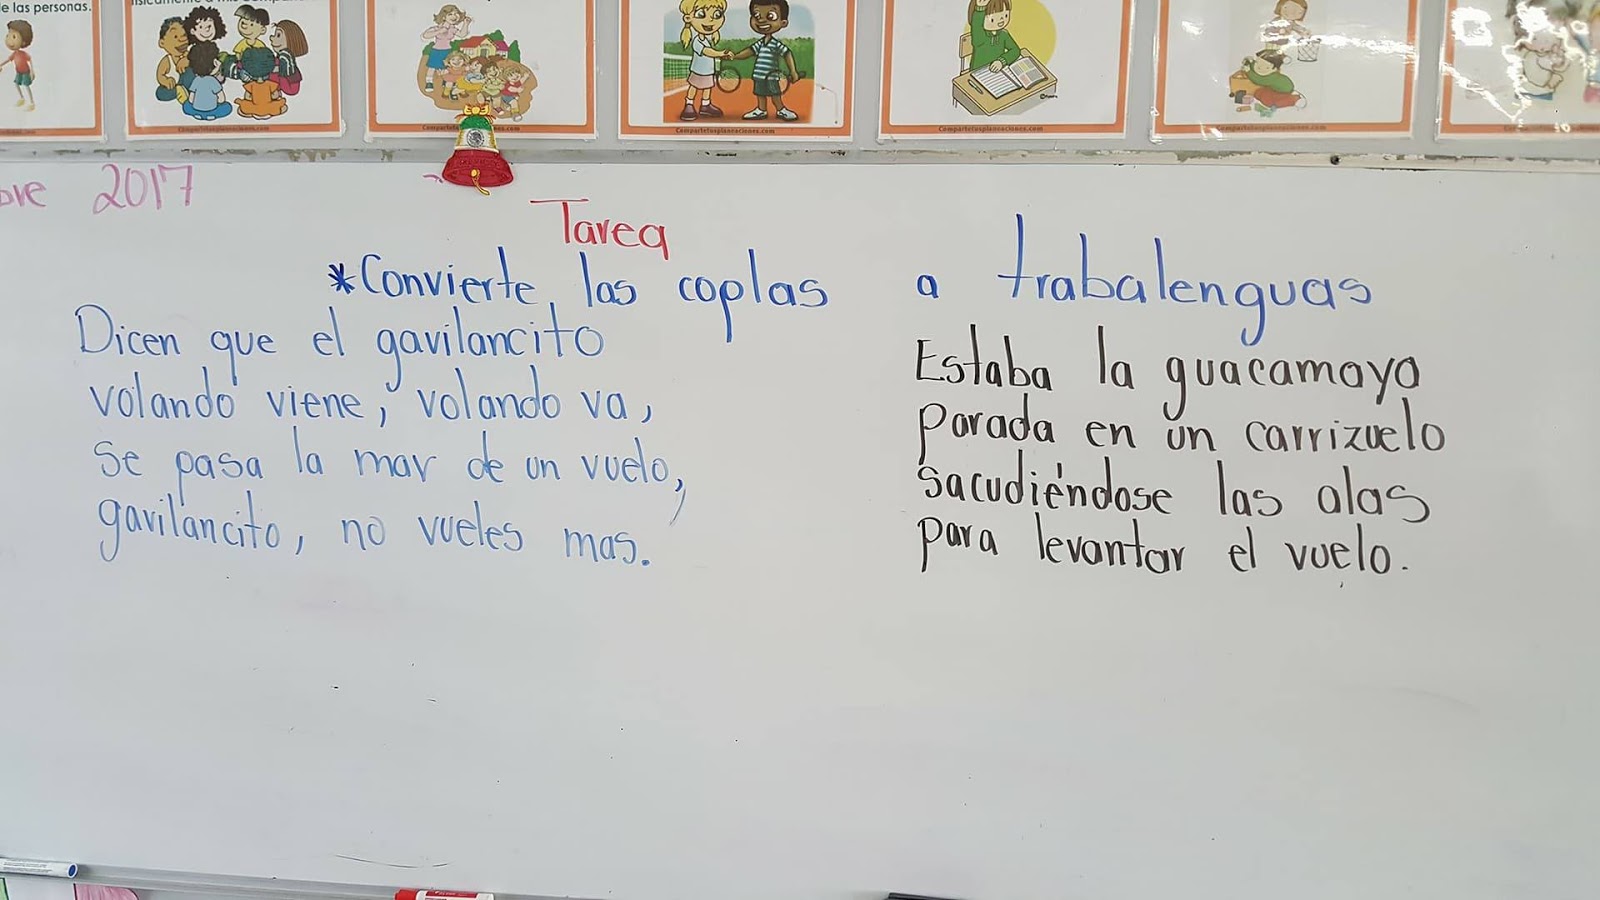 e las personas.
Compartetusplaneaciones.com
Compartetusplaneaciones.com
Compartetusplaneaciones.com
Compartetusplaneaciones.com
Compartetusplaneaciones.com
bre 2017
Tarea
*Convierte las coplas a trabalenguas
Dicen que el gavilancito
volando viene, volando va,
se pasa la mar de un vuelo,
gavilancito, no vueles mas.
Estaba la guacamaya
parada en un carrizuelo
sacudiéndose las alas
para levantar el vuelo.